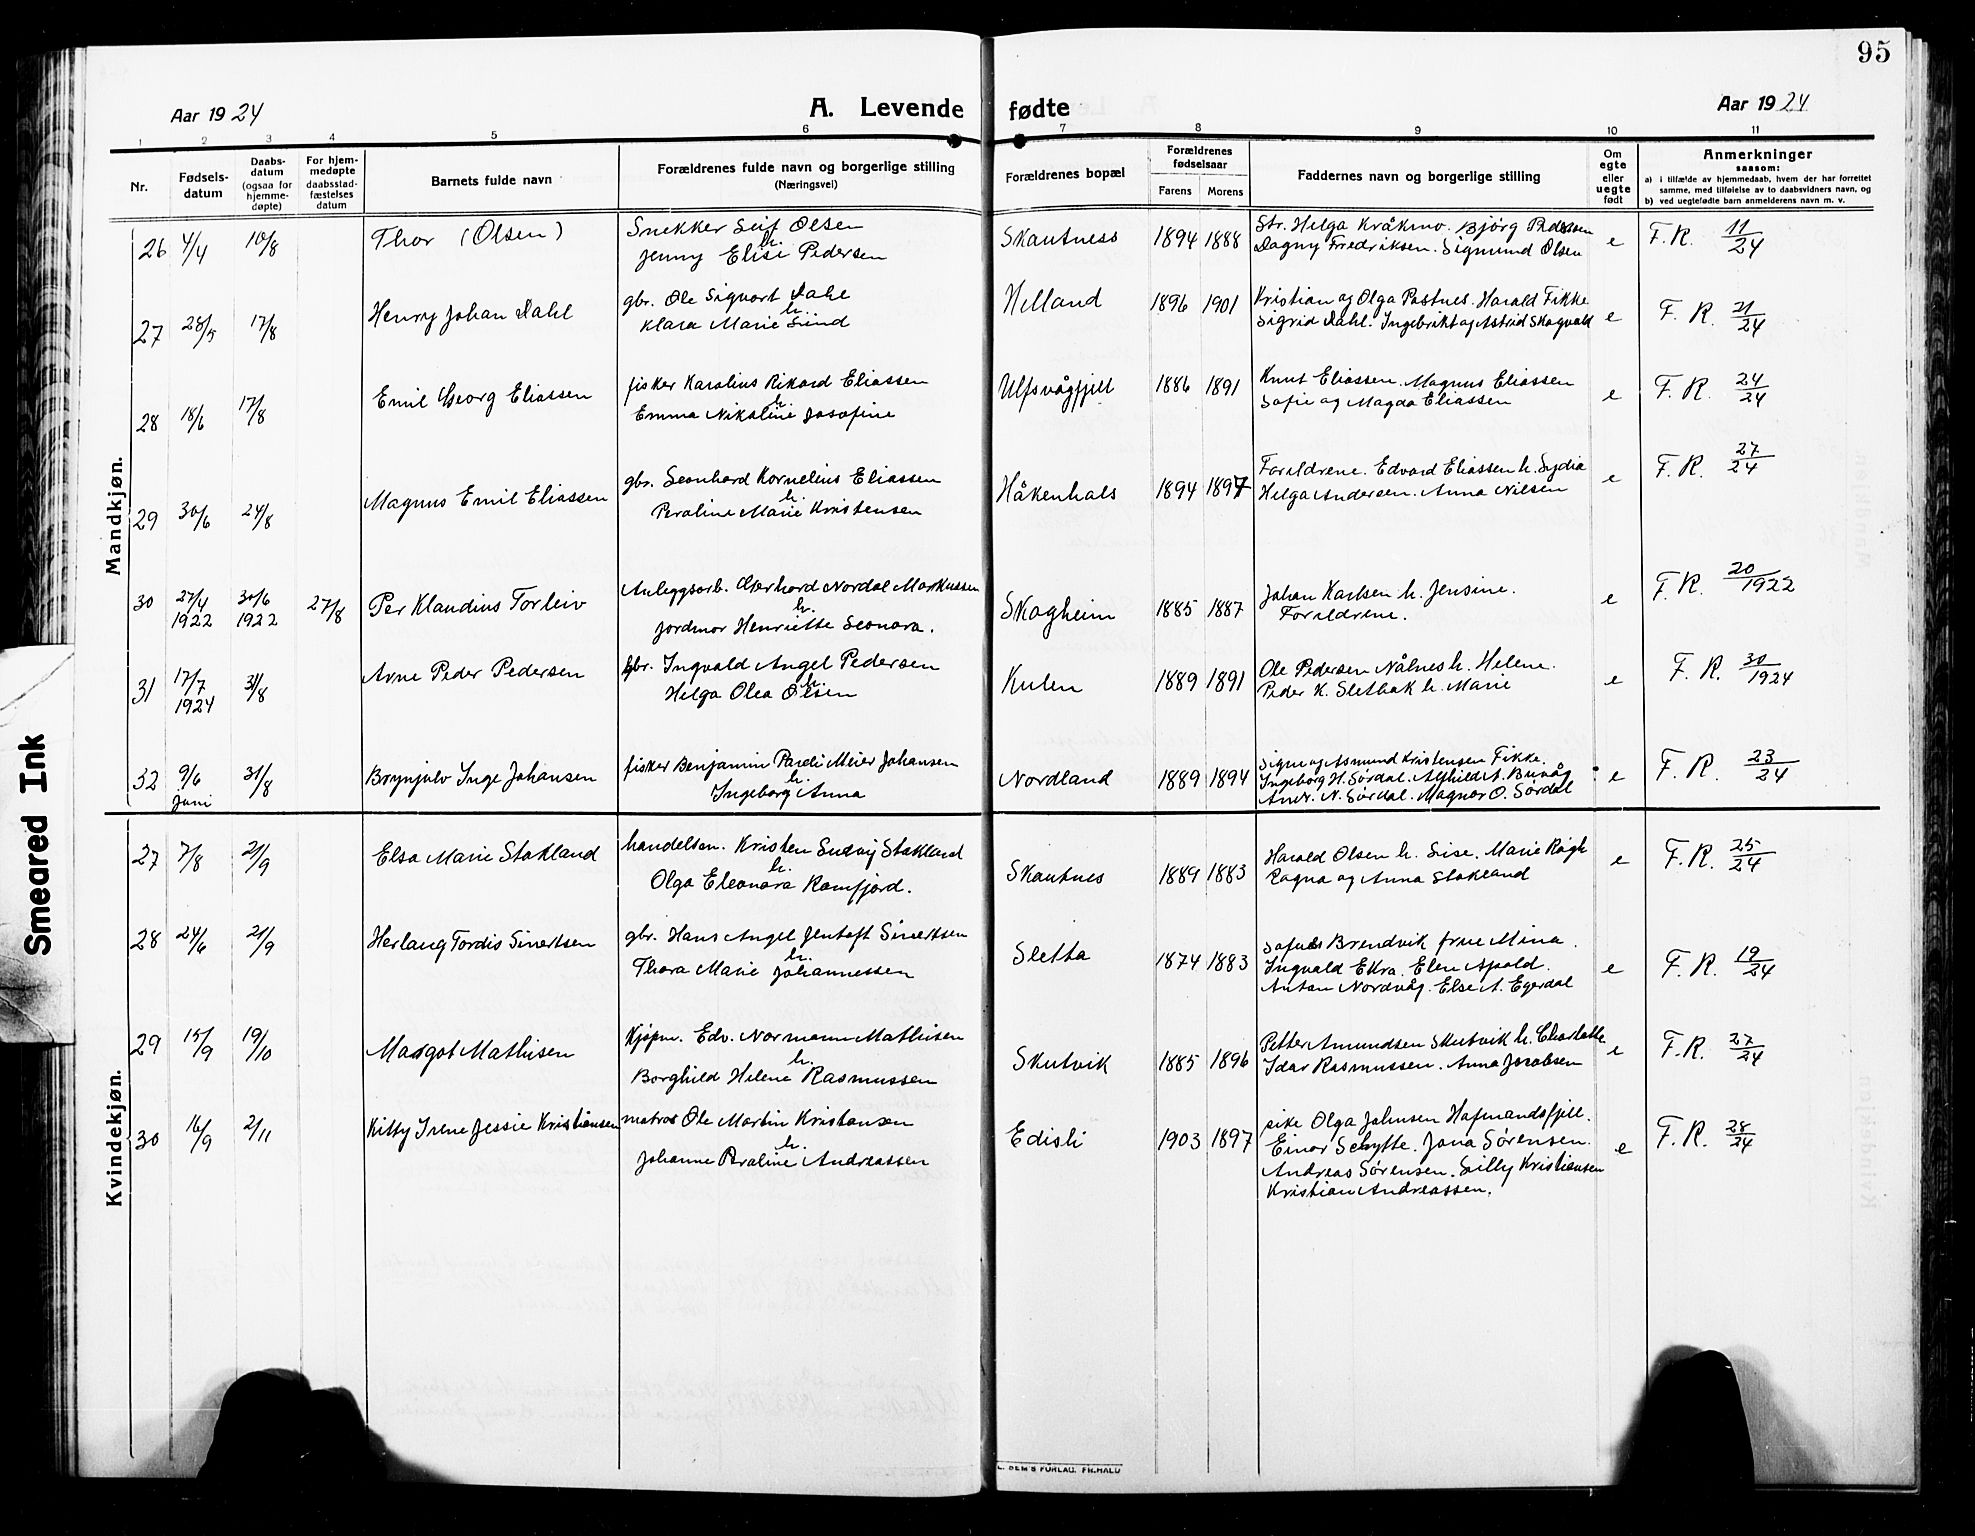 95
Aar 1924
A. Levende fødte
Aar 1924
1 2 3 4 5 6 7 8 9 10 11
Nr.
Fødsels-
datum
Daabs-
datum
(ogsaa for
hjemme-
døpte)
For hjem-
medøpte
daabsstad-
fæstelses
datum
Barnets fulde navn
Forældrenes fulde navn og borgerlige stilling
(Næringsvei)
Forældrenes bopæl
Forældrenes
fødselsaar
Farens Morens
Faddernes navn og borgerlige stilling
Om
egte
eller
uegte
født
Anmerkninger
saasom:
a) i tilfælde av hjemmedaab, hvem der har forrettet
samme, med tilføielse av to daabsvidners navn, og
b) ved uegtefødte barn anmelderens navn m. v.
Mandkjøn.
26 4/4 10/8 Thor (Olsen)
Snekker Leif Olsen
h.
Jenny Elise Pedersen
Skautness 1894 1888
Str. Helga Kråkmo. Bjørg Pedersen
Dagny Fredriksen. Sigmund Olsen
e F. R. 11/24
27 28/5 17/8 Henry Johan Dahl
gbr. Ole Sigvart Dahl
h.
Klara Marie Lund
Helland 1896 1901
Kristian og Olga Pastnes. Harald Fikke
Sigrid Dahl. Ingebrikt og Astrid Skogvold
e F. R. 21/24
28 18/6 17/8 Emil Georg Eliassen
fisker Karolius Rikard Eliassen
h.
Emma Nikoline Josefine
Ulfsvågfjell 1886 1891
Knut Eliassen. Magnus Eliassen
Sofie og Magda Eliassen
e F. R. 24/24
29 30/6 24/8 Magnus Emil Eliassen
gbr. Leonhard Kornelius Eliassen
h.
Peraline Marie Kristensen
Håkenhals 1894 1897
Forældrene. Edvard Eliassen h. Lydia
Helga Andersen. Anna Nilsen
e F. R. 27/24
30 27/4 1922 30/6 1922 27/8 Per Klaudius Torleiv
Anleggsarb. Gerhard Nordal Markussen
h.
Jordmor Henriette Leonora.
Skogheim 1885 1887
Johan Karlsen h. Jensine.
Forældrene.
e F. R. 20/1922
31 17/7 1924 31/8 Arne Peder Pedersen
gbr. Ingvald Angel Pedersen
h.
Helga Olea Olsen
Kulen 1889 1891
Ole Pedersen Nålnes h. Helene.
Peder K. Sletbak h. Marie
e F. R. 30/1924
32 9/6 Juni 31/8 Brynjulv Inge Johansen
fisker Benjamin Pareli Meier Johansen
h.
Ingeborg Anna
Nordland 1889 1894
Signe og Asmund Kristensen Fikke.
Ingeborg H. Sørdal. Alfhild A. Buvåg
Andr. N. Sørdal. Magnar O. Sørdal
e F. R. 23/24
Kvindekjøn.
27 7/8 21/9 Elsa Marie Stokland
handelsm. Kristen Ludvig Stokland
h.
Olga Eleonora Ramfjord.
Skautnes 1889 1883
Harald Olsen h. Lise. Marie Røgh
Ragna og Anna Stokland
e F. R. 25/24
28 24/6 21/9 Herlaug Tordis Sivertsen
gbr. Hans Angel Jentoft Sivertsen
h.
Thora Marie Johannessen
Sletta 1874 1883
Brendvik frue Mina.
Ingvald Ekra. Elen Apold.
Anton Nordvåg. Else A. Egerdal
e F. R. 19/24
29 15/9 19/10 Margot Mathisen
Kjøpm. Edv. Normann Mathisen
h.
Borghild Helene Rasmussen
Skutvik 1885 1896
Petter Amundsen Skutvik h. Charlotte
Idar Rasmussen. Anna Jacobsen
e F. R. 27/24
30 16/9 2/11 Kitty Irene Jessie Kristiansen
matros Ole Martin Kristiansen
h.
Johanne Peraline Andreassen
Edisli 1903 1897
pike Olga Johnsen Hafmandsfjell.
Einar Schytte. Jona Sørensen.
Andreas Sørensen. Lilly Kristiansen
Kristian Andreassen.
e F. R. 28/24
Smeared Ink
FORLAG. FR. HALD